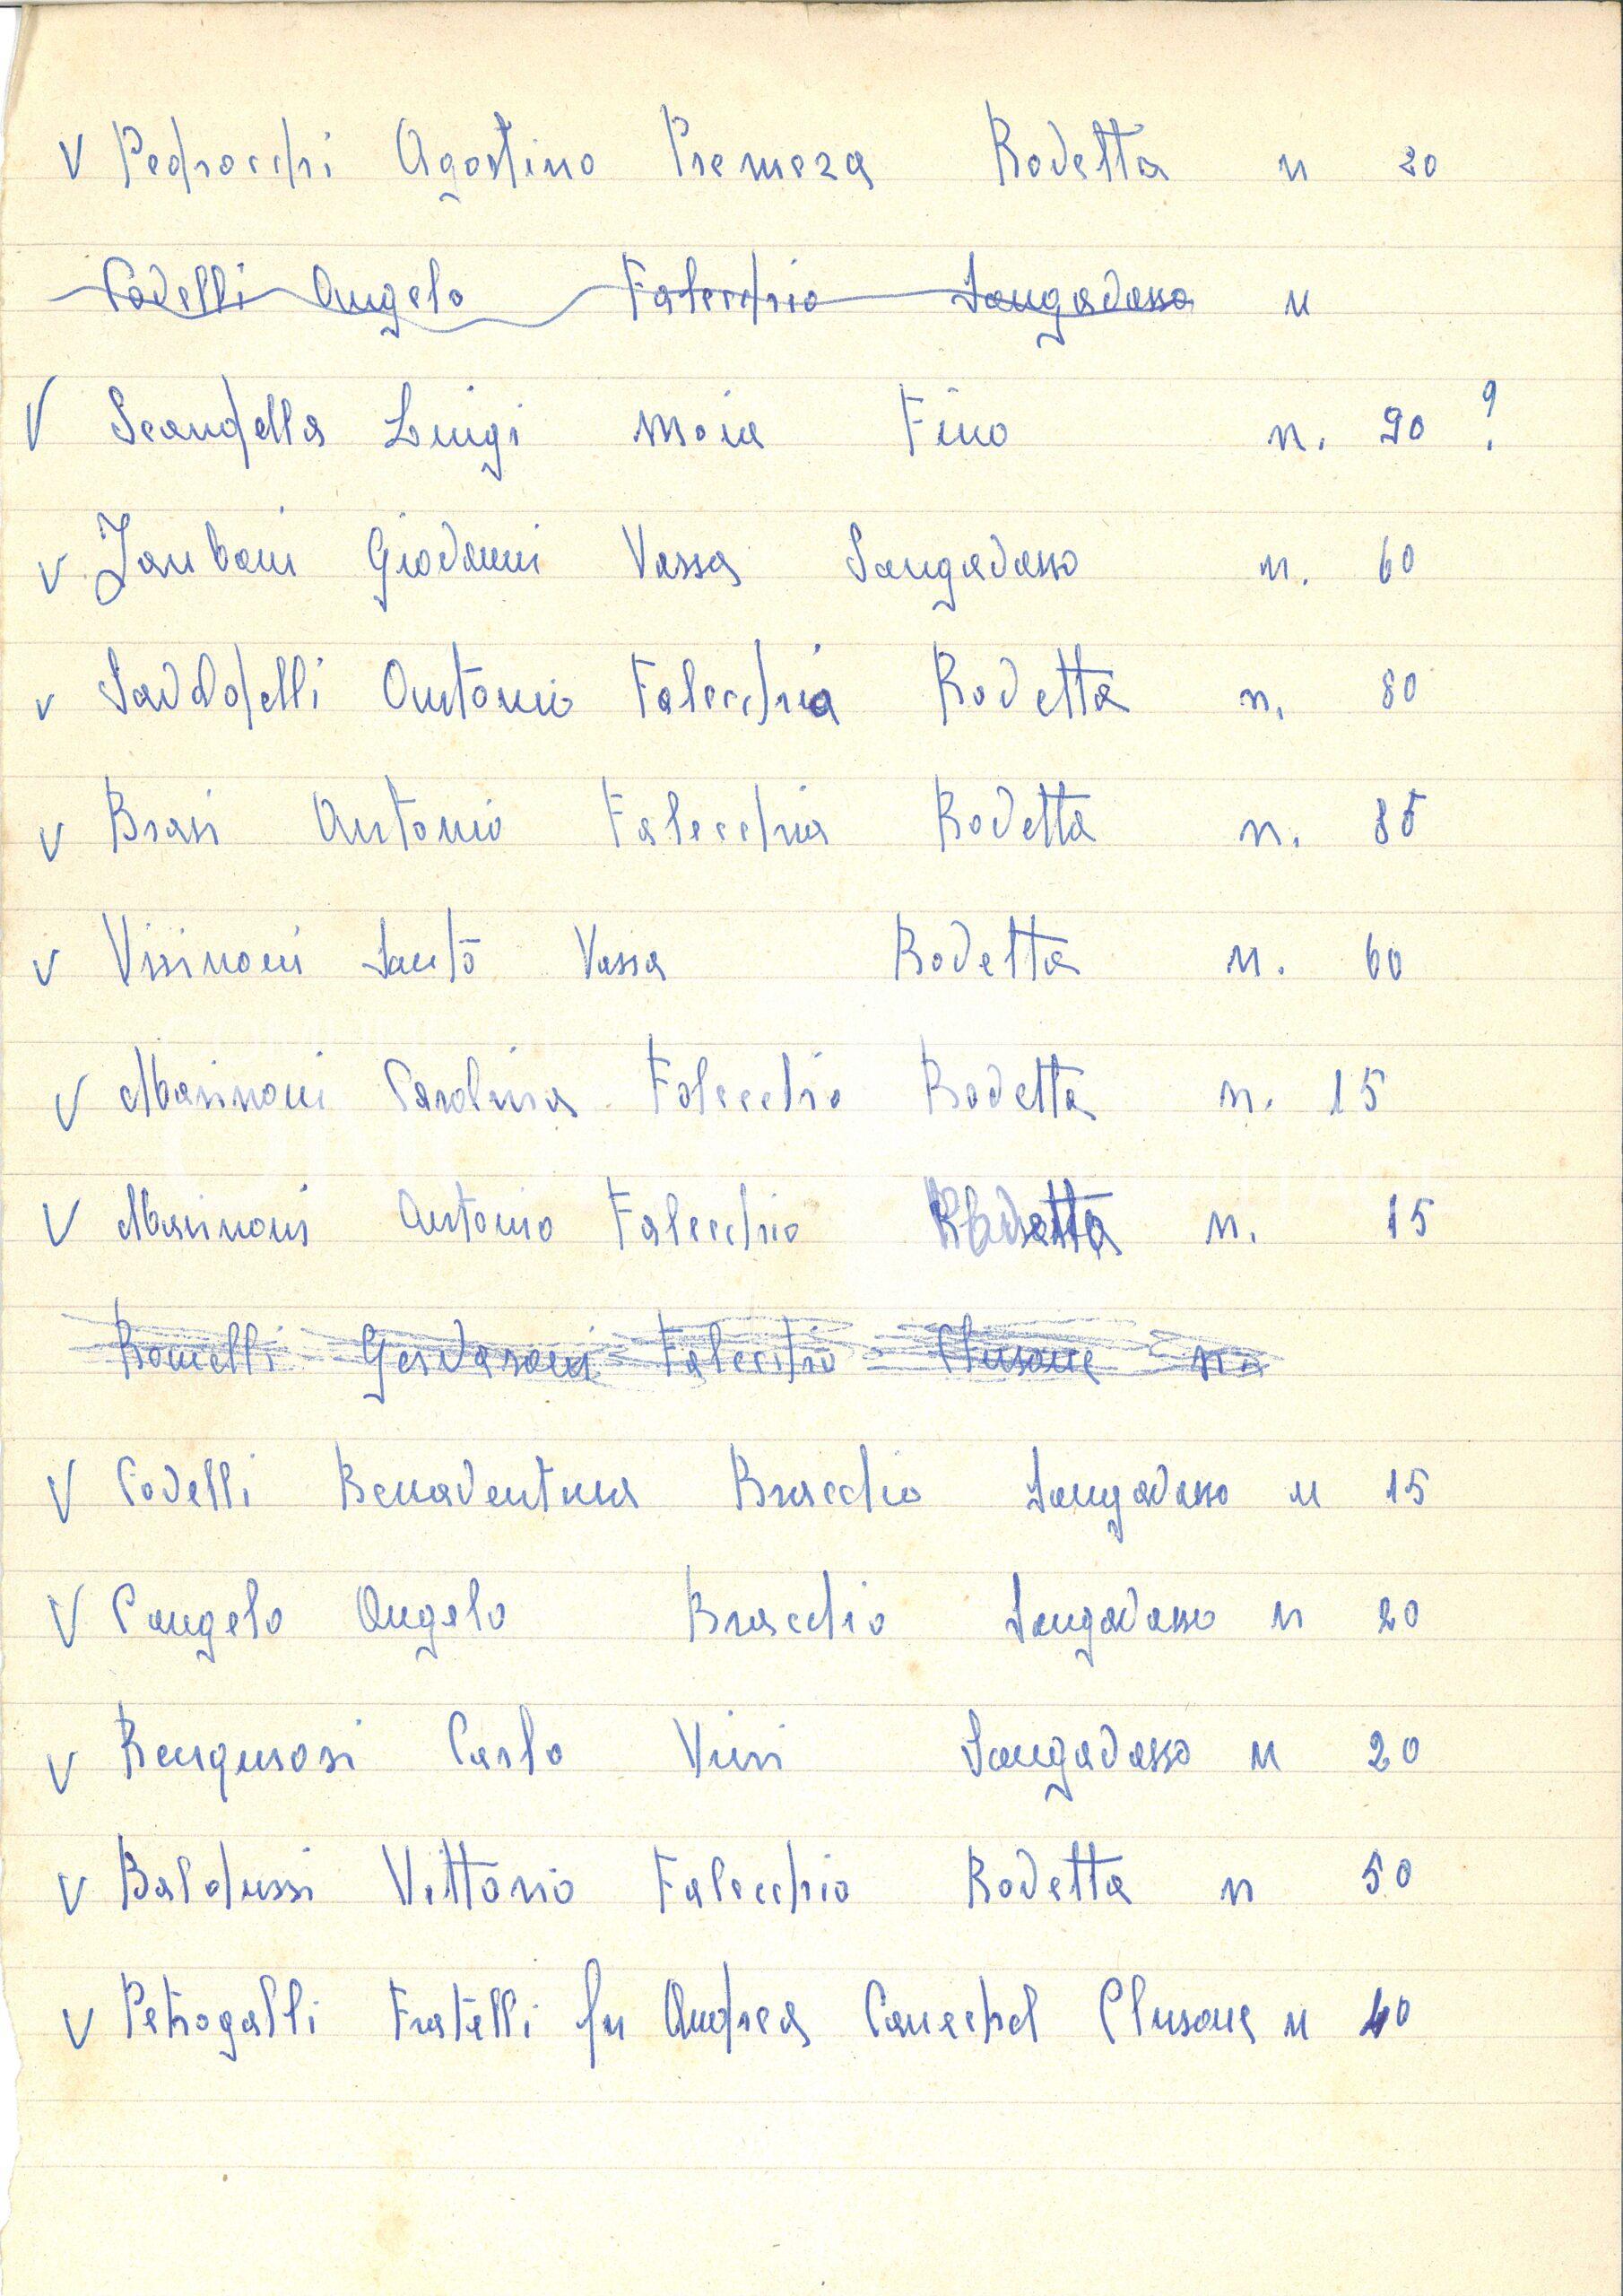 V Pedrocchi Agostino Premeza Rovetta n 20
Covelli Angelo Falecchio Songavasso n
V Scandella Luigi Moia Fino n. 20 ?
V Zanboni Giovanni Vassa Songavasso n. 60
V Savoldelli Antonio Falecchia Rovetta n. 80
V Brasi Antonio Falecchia Rovetta n. 85
V Visinoni Santo Vassa Rovetta n. 60
V Marinoni Carolina Falecchio Rovetta n. 15
V Marinoni Antonio Falecchio Rovetta n. 15
Romelli Falecchio Clusone n.
V Covelli Bonaventura Bracchio Songavasso n 15
V Cangelo Angelo Bracchio Songavasso n 20
V Carlo Songavasso n 20
V Baldussi Vittorio Falecchio Rovetta n 50
V Petrogalli Fratelli fu Andrea Clusone n 40